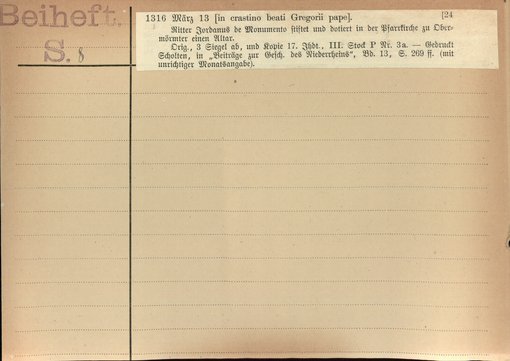 Beiheft.
S. 8
1316 März 13 [in crastino beati Gregorii pape]. [24
Ritter Jordanus de Monumento stiftet und dotiert in der Pfarrkirche zu Ober-
mörmter einen Altar.
Orig., 3 Siegel ab, und Kopie 17. Jhdt., III: Stock P Nr. 3a. — Gedruckt
Scholten, in „Beiträge zur Gesch. des Niederrheins“, Bd. 13, S. 269 ff. (mit
unrichtiger Monatsangabe).